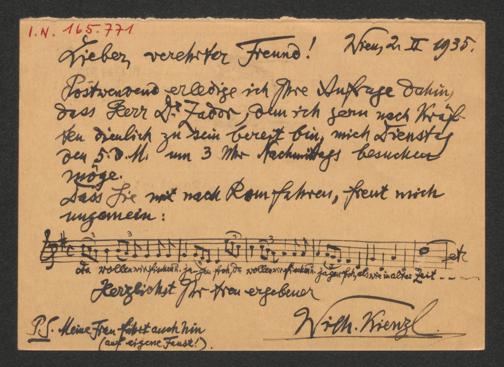 I.N. 165.771
Lieber, verehrter Freund! Wien, 2. II 1935.
Postwendend erledige ich Ihre Anfrage dahin,
dass Herr Dr. Zador, dem ich gern nach Kräf-
ten dienlich zu sein bereit bin, mich Dienstag
den 5. d. M. um 3 Uhr Nachmittags besuchen
möge.
Dass Sie mit nach Rom fahren, freut mich
ungemein:
Da wollen wir fischen, jagen froh, da wollen wir fischen, jagen froh, als wie in alter Zeit --- etc
Herzlichst Ihr treu ergebener
Wilh. Kienzl.
P.S. Meine Frau fährt auch hin
(auf eigene Faust!).